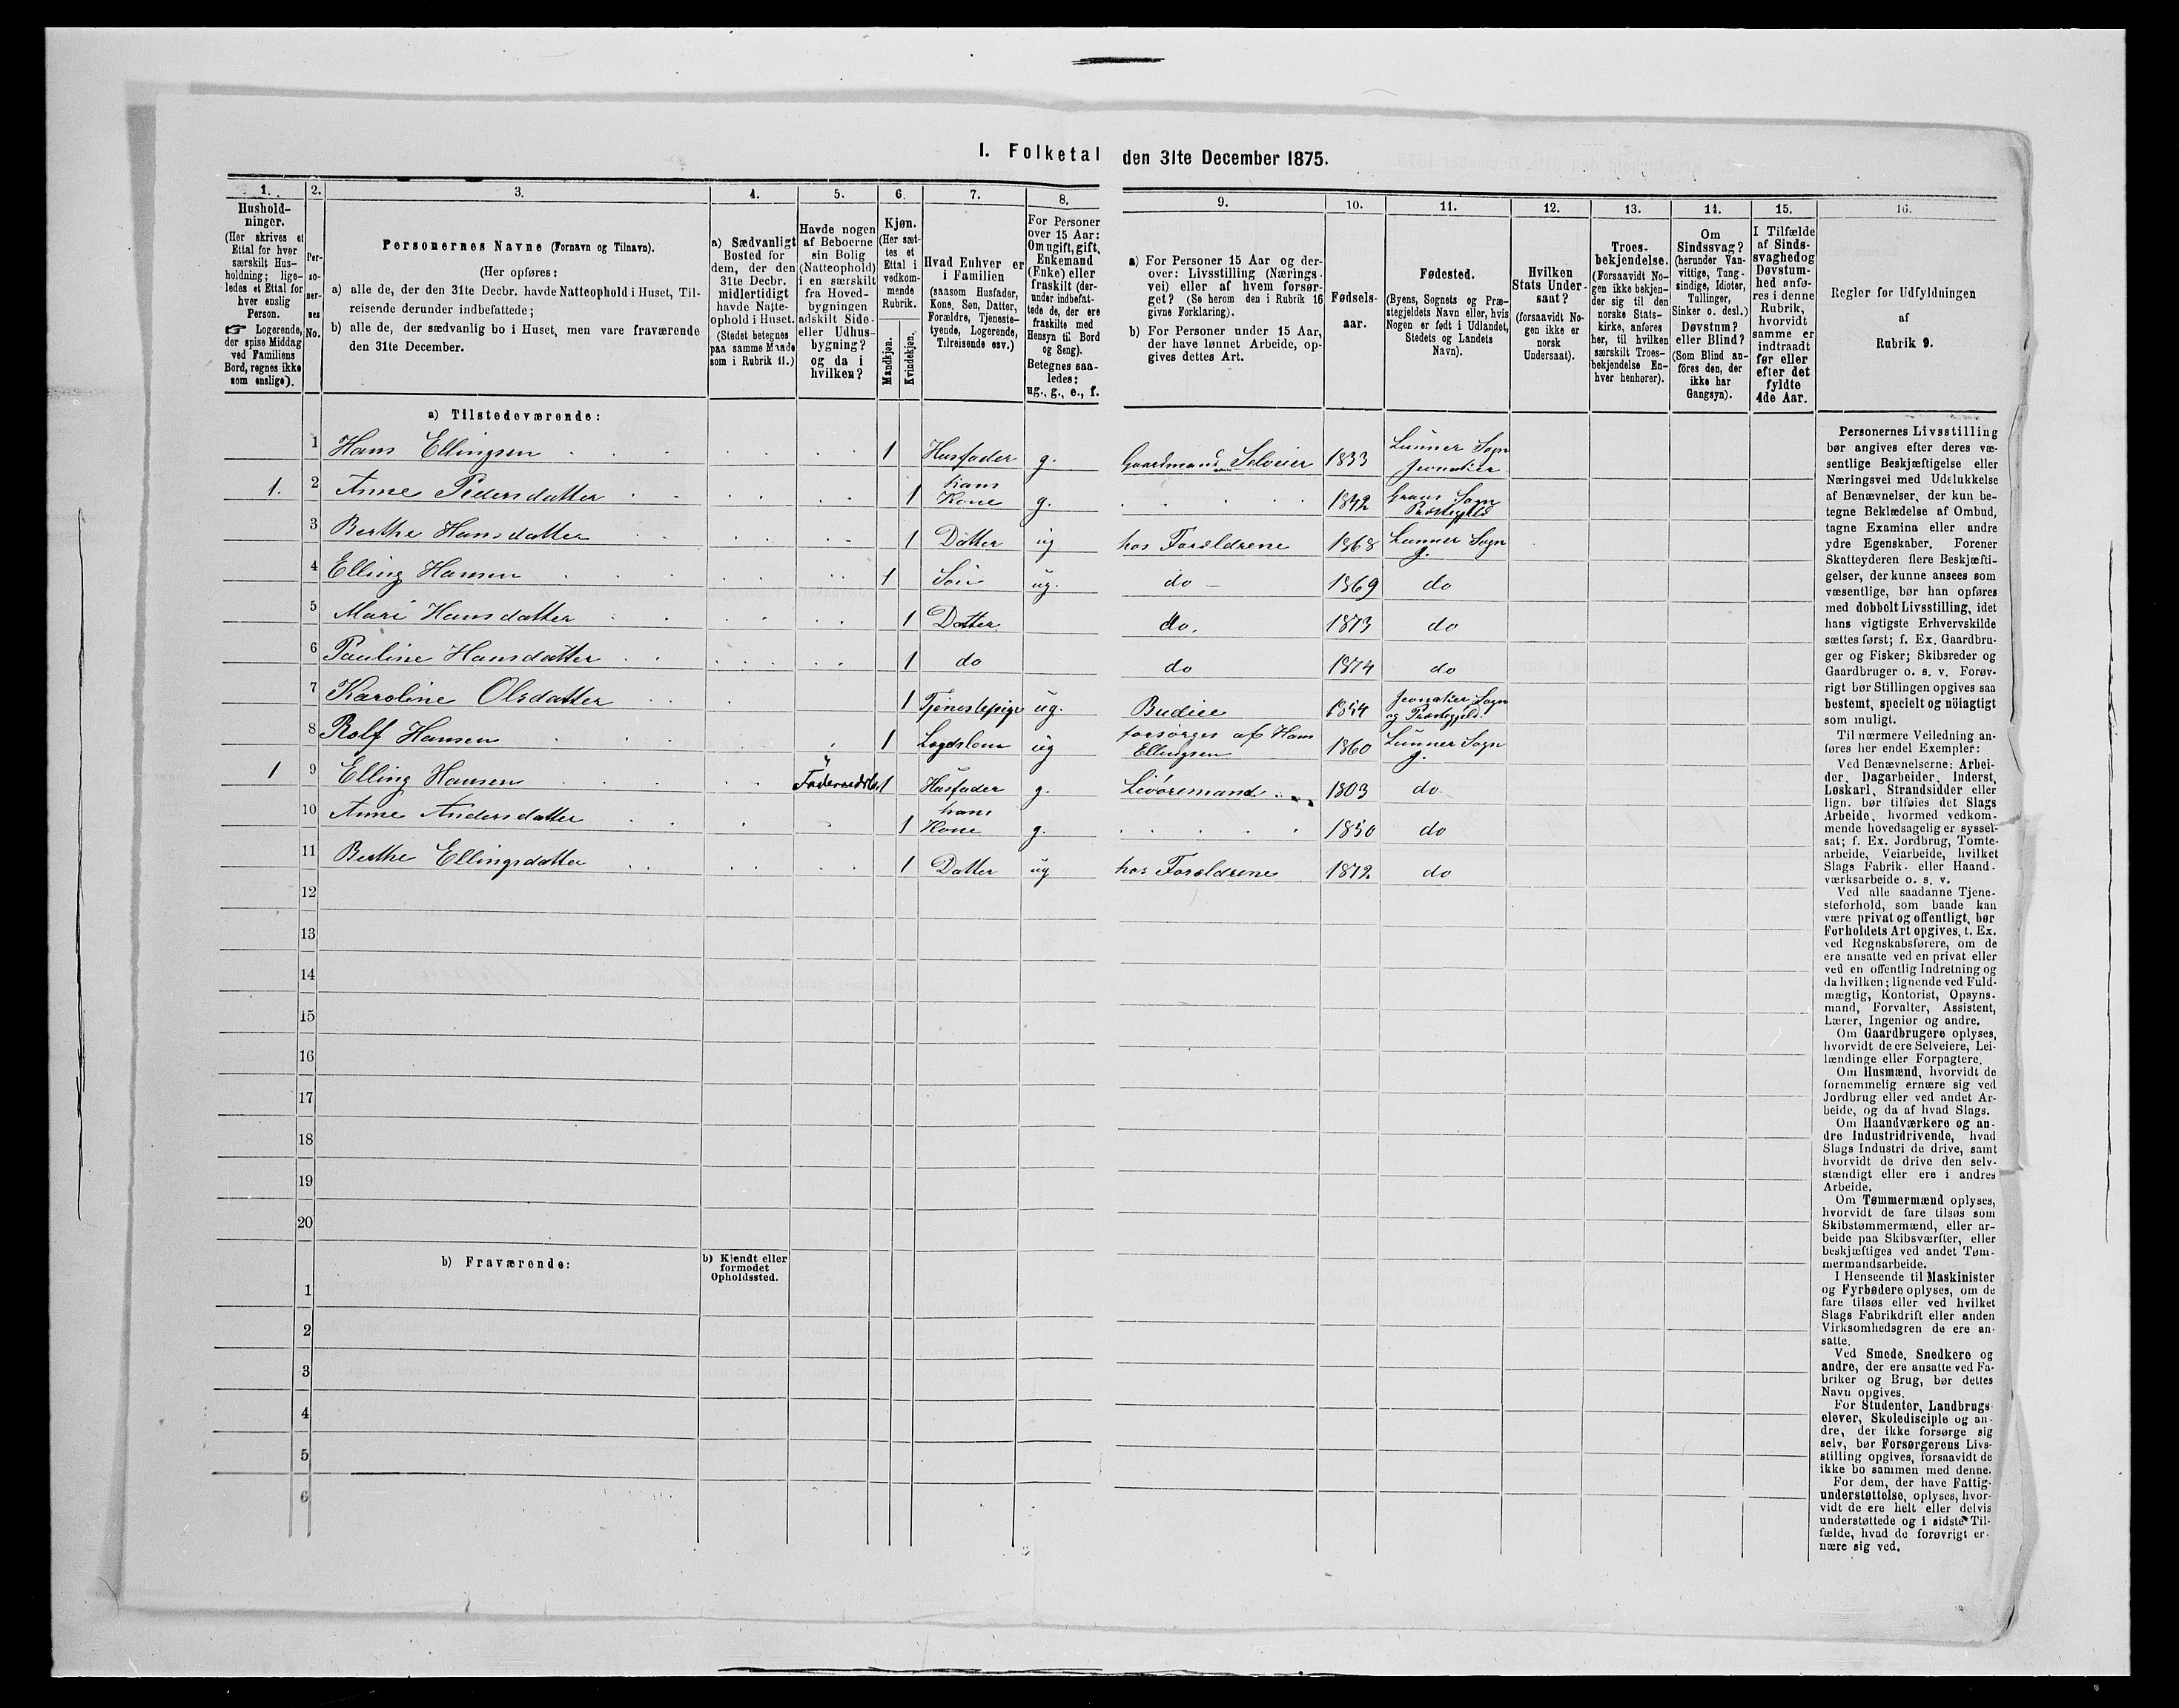 I. Folketal den 31te December 1875.
1. 2. 3. 4. 5. 6. 7. 8. 9. 10. 11. 12. 13. 14. 15. 16.
Hushold-
ninger.
(Her skrives et
Ettal for hver
særskilt Hus-
holdning; lige-
ledes et Ettal for
hver enslig
Person.
☞ Logerende,
der spise Middag
ved Familiens
Bord, regnes ikke
som enslige).
Per-
so-
ner-
nes
No.
Personernes Navne (Fornavn og Tilnavn).
(Her opføres:
a) alle de, der den 31te Decbr. havde Natteophold i Huset, Til-
reisende derunder indbefattede;
b) alle de, der sædvanlig bo i Huset, men vare fraværende
den 31te December.
a) Sædvanligt
Bosted for
dem, der den
31te Decbr.
midlertidigt
havde Natte-
ophold i Huset.
(Stedet betegnes
paa samme Maade
som i Rubrik 11.)
Havde nogen
af Beboerne
sin Bolig
(Natteophold)
i en særskilt
fra Hoved-
bygningen
adskilt Side-
eller Udhus-
bygning?
og da i
hvilken?
Kjøn.
(Her sæt-
tes et
Ettal i
vedkom-
mende
Rubrik.
Mandkjøn.
Kvindekjøn.
Hvad Enhver er
i Familien
(saasom Husfader,
Kone, Søn, Datter,
Forældre, Tjeneste-
tyende, Logerende,
Tilreisende osv.)
For Personer
over 15 Aar:
Om ugift, gift,
Enkemand
(Enke) eller
fraskilt (der-
under indbefat-
tede de, der ere
fraskilte med
Hensyn til Bord
og Seng).
Betegnes saa-
ledes:
ug., g., e., f.
a) For Personer 15 Aar og der-
over: Livsstilling (Nærings-
vei) eller af hvem forsør-
get? (Se herom den i Rubrik 16
givne Forklaring).
b) For Personer under 15 Aar,
der have lønnet Arbeide, op-
gives dettes Art.
Fødsels-
aar.
Fødested.
(Byens, Sognets og Præ-
stegjeldets Navn eller, hvis
Nogen er født i Udlandet,
Stedets og Landets
Navn).
Hvilken
Stats Under-
saat?
(forsaavidt No-
gen ikke er
norsk
Undersaat).
Troes-
bekjendelse.
(Forsaavidt No-
gen ikke bekjen-
der sig til den
norske Stats-
kirke, anføres
her, til hvilken
særskilt Troes-
bekjendelse En-
hver henhører).
Om
Sindssvag?
(herunder Van-
vittige, Tung-
sindige, Idioter,
Tullinger,
Sinker o. desl.)
Døvstum?
eller Blind?
(Som Blind an-
føres den, der
ikke har
Gangsyn).
I Tilfælde
af Sinds-
svaghed og
Døvstum-
hed anfø-
res i denne
Rubrik,
hvorvidt
samme er
indtraadt
før eller
efter det
fyldte
4de Aar.
Regler for Udfyldningen
af
Rubrik 9.
a) Tilstedeværende:
1 Hans Ellingsen 1 Husfader g. Gaardmand Selveier 1833 Lunner Sogn Jevnaker
1. 2 Anne Pedersdatter 1 hans Kone g. 1842 Grans Sogn Præstegjeld
3 Berthe Hansdatter 1 Datter ug hos Forældrene 1868 Lunner Sogn J.
4 Elling Hansen 1 Søn ug. do 1869 do
5 Mari Hansdatter 1 Datter do. 1873 do
6 Pauline Hansdatter 1 do do 1874 do
7 Karoline Olsdatter 1 Tjenestepige ug. Budeie 1854 Jevnaker Sogn og Præstegjeld.
8 Rolf Hansen 1 Lægdslem ug forsørges af Hans Ellingsen 1860 Lunner Sogn J.
1 9 Elling Hansen 1 Husfader g. Livøremand 1803 do
10 Anne Andersdatter 1 hans Kone g. 1830 do
11 Berthe Ellingsdatter 1 Datter ug hos Forældrene 1872 do
12
13
14
15
16
17
18
19
20
b) Fraværende:
b) Kjendt eller
formodet
Opholdssted.
1
2
3
4
5
6
Personernes Livsstilling
bør angives efter deres væ-
sentlige Beskjæftigelse eller
Næringsvei med Udelukkelse
af Benævnelser, der kun be-
tegne Beklædelse af Ombud,
tagne Examina eller andre
ydre Egenskaber. Forener
Skatteyderen flere Beskjæfti-
gelser, der kunne ansees som
væsentlige, bør han opføres
med dobbelt Livsstilling, idet
hans vigtigste Erhvervskilde
sættes først; f. Ex. Gaardbru-
ger og Fisker; Skibsreder og
Gaardbruger o. s. v. Forøv-
rigt bør Stillingen opgives saa
bestemt, specielt og nöiagtigt
som muligt.
Til nærmere Veiledning an-
føres her endel Exempler:
Ved Benævnelserne: Arbei-
der, Dagarbeider, Inderst,
Løskarl, Strandsidder eller
lign. bør tilføies det Slags
Arbeide, hvormed vedkom-
mende hovedsagelig er syssel-
sat; f. Ex. Jordbrug, Tomte-
arbeide, Veiarbeide, hvilket
Slags Fabrik- eller Haand-
værksarbeide o. s. v.
Ved alle saadanne Tjene-
steforhold, som baade kan
være privat og offentligt, bør
Forholdets Art opgives, t. Ex.
ved Regnskabsførere, om de
ere ansatte ved en privat eller
ved en offentlig Indretning og
da hvilken; lignende ved Fuld-
mægtig, Kontorist, Opsyns-
mand, Forvalter, Assistent,
Lærer, Ingeniør og andre.
Om Gaardbrugere oplyses,
hvorvidt de ere Selveiere, Lei-
lændinge eller Forpagtere.
Om Husmænd, hvorvidt de
fornemmelig ernære sig ved
Jordbrug eller ved andet Ar-
beide, og da af hvad Slags.
Om Haandværkere og an-
dre Industridrivende, hvad
Slags Industri de drive, samt
hvorvidt de drive den selv-
stændigt eller ere i andres
Arbeide.
Om Tømmermænd oplyses,
hvorvidt de fare tilsøs som
Skibstømmermænd, eller ar-
beide paa Skibsværfter, eller
beskjæftiges ved andet Tøm-
mermandsarbeide.
I Henseende til Maskinister
og Fyrbødere oplyses, om de
fare tilsøs eller ved hvilket
Slags Fabrikdrift eller anden
Virksomhedsgren de ere an-
satte.
Ved Smede, Snedkere og
andre, der ere ansatte ved Fa-
briker og Brug, bør dettes
Navn opgives.
For Studenter, Landbrugs-
elever, Skoledisciple og an-
dre, der ikke forsørge sig
selv, bør Forsørgerens Livs-
stilling opgives, forsaavidt de
ikke bo sammen med denne.
For dem, der have Fattig-
understøttelse, oplyses, hvor-
vidt de ere helt eller delvis
understøttede og i sidste Til-
fælde, hvad de forøvrigt er-
nære sig ved.